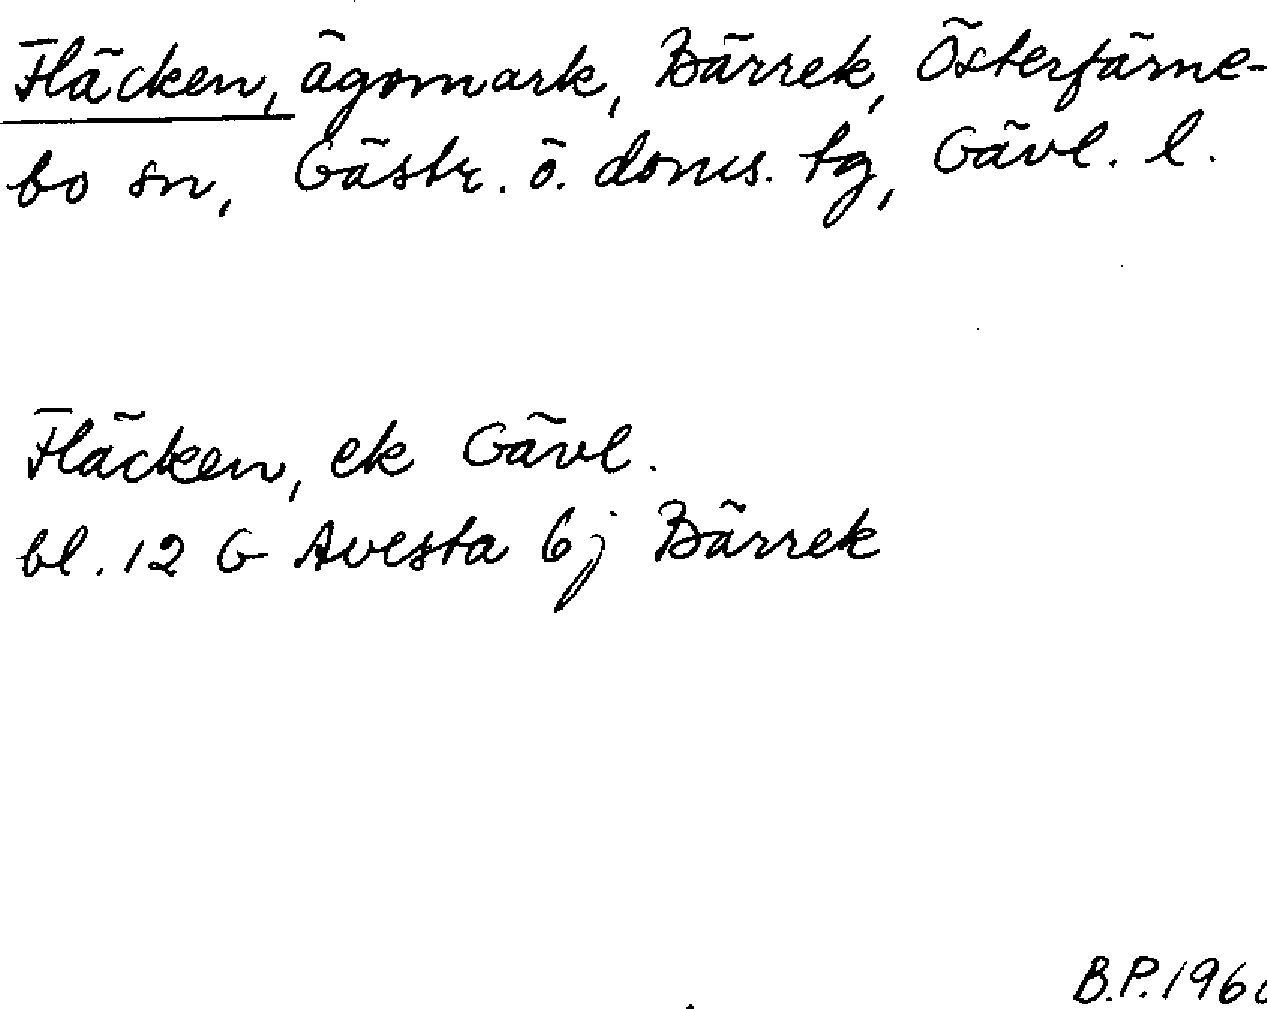 Fläcken, ägomark, Bärrek, Österfärne-
bo sn, Gästr. ö. doms. tg, Gävl. l.
Fläcken, ek Gävl.
bl. 12 G Avesta 6j Bärrek
B.P. 196